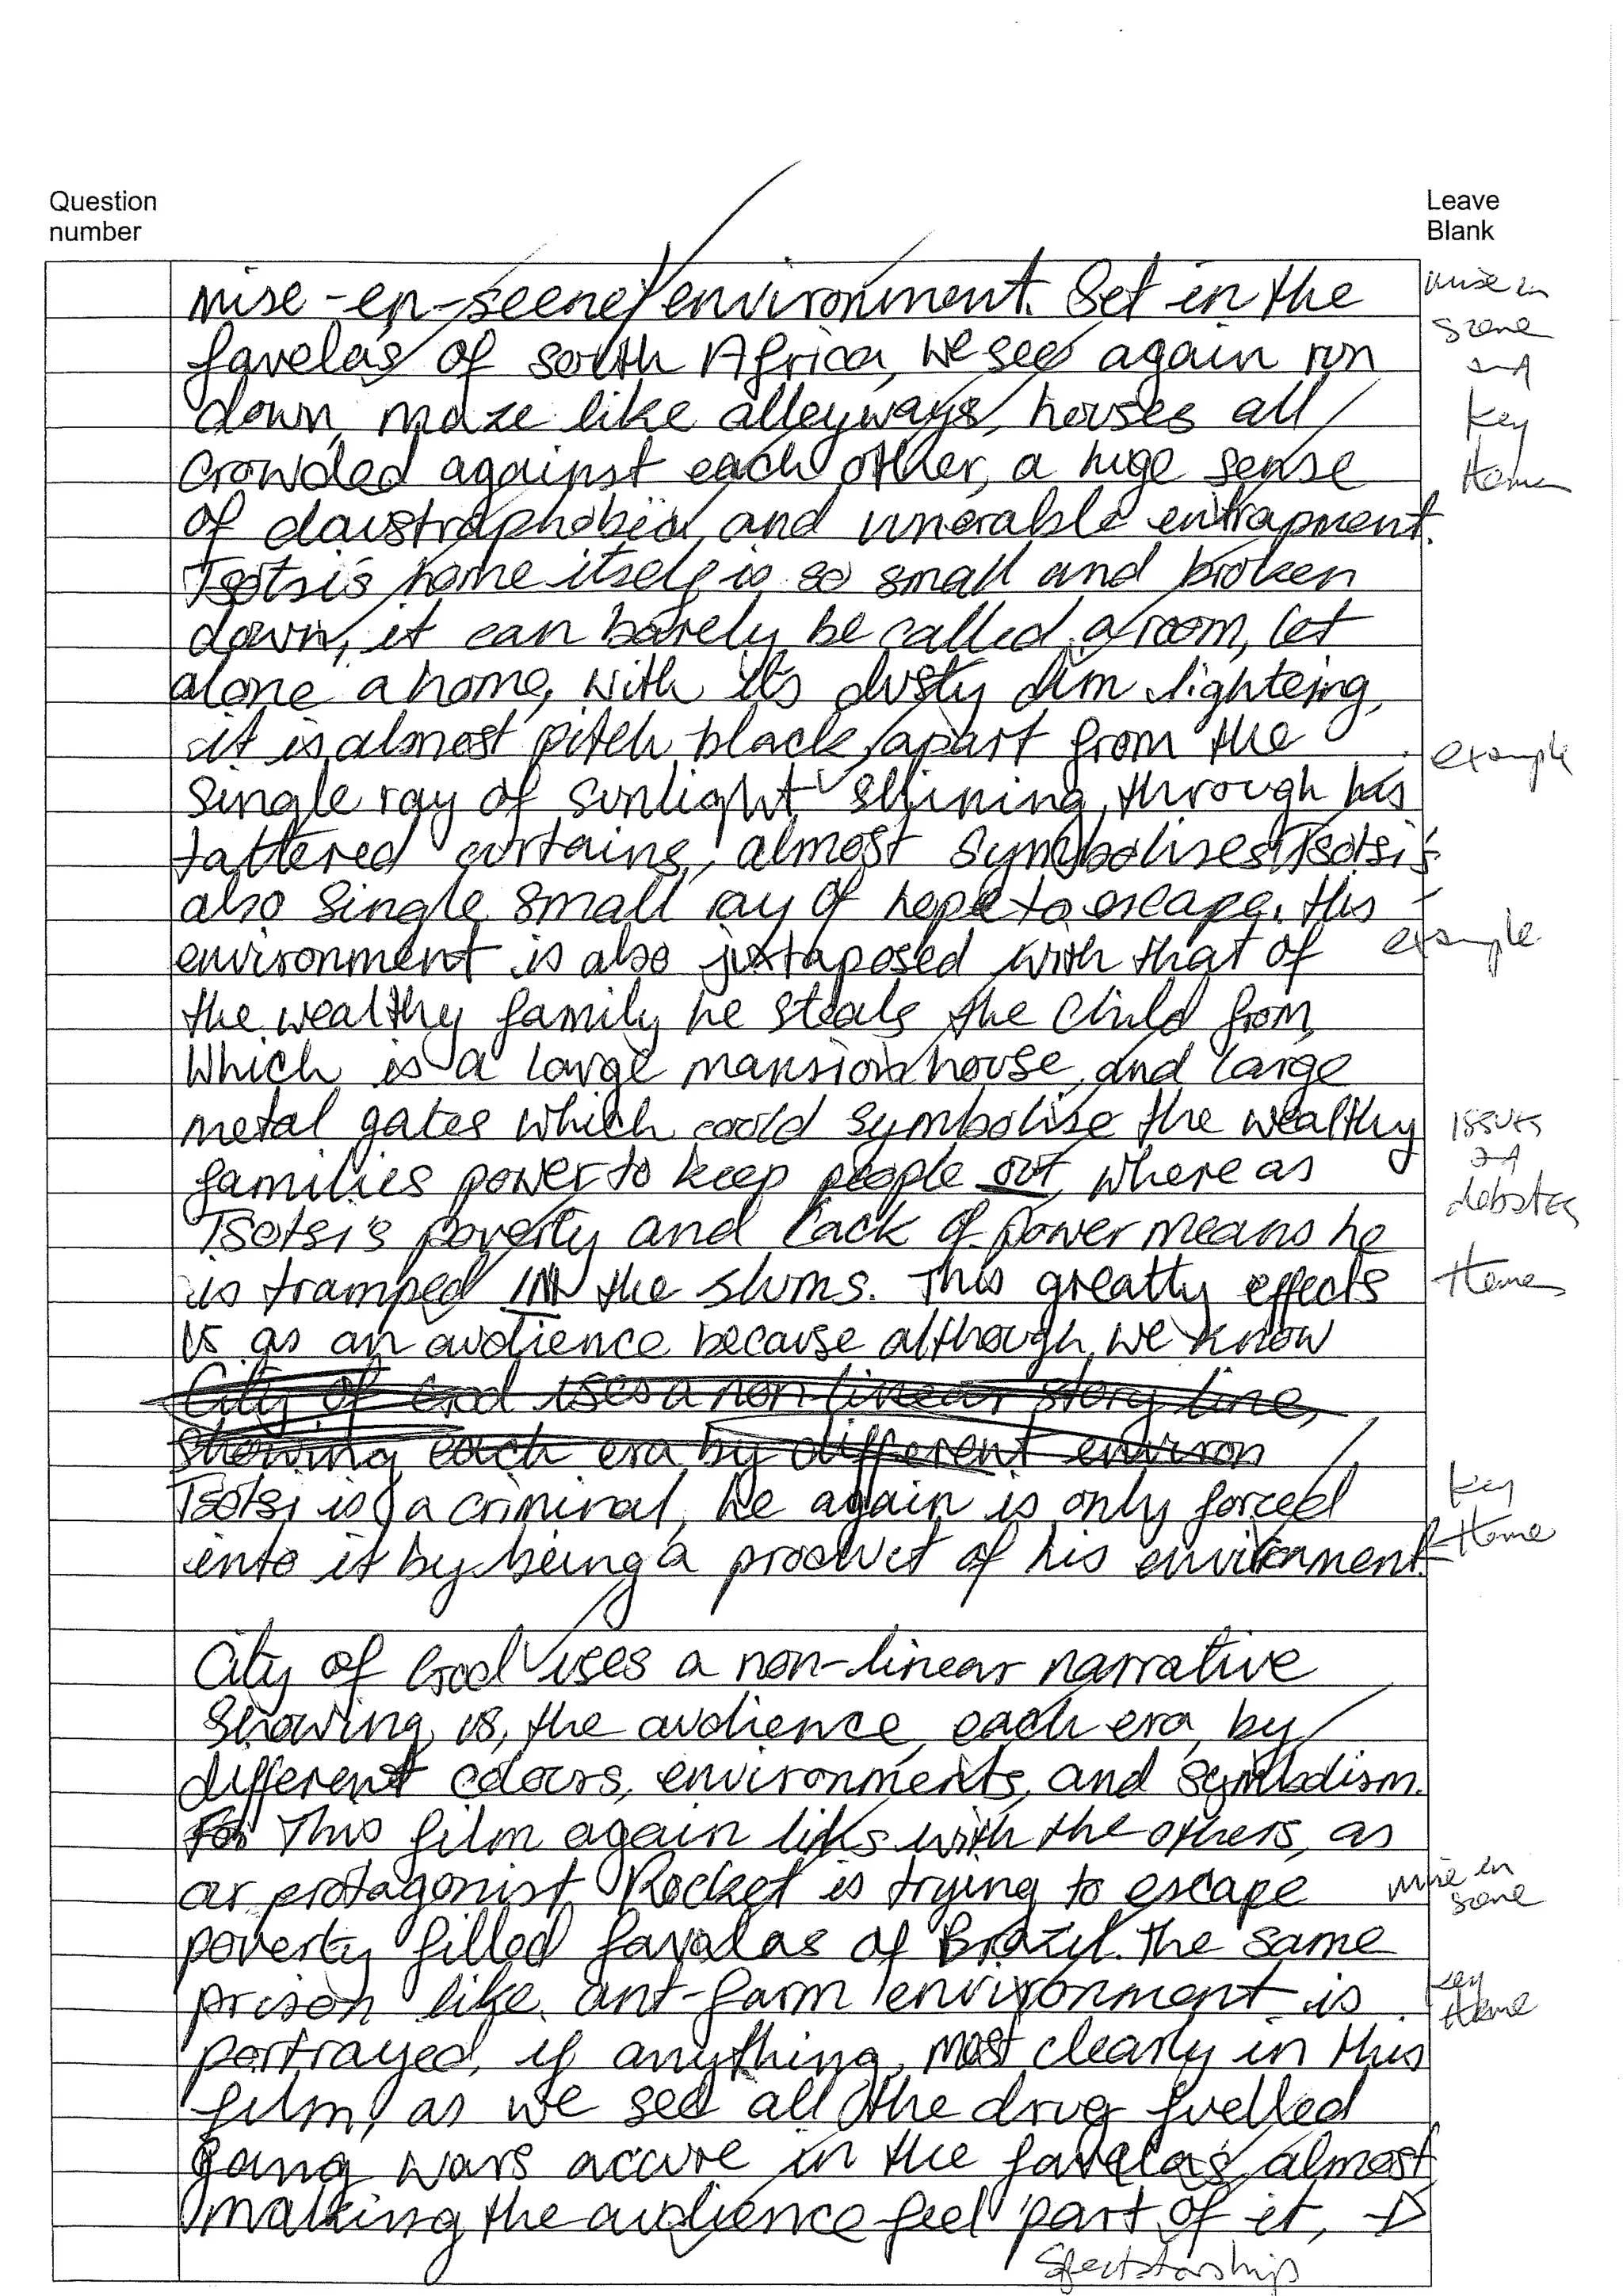 Question
number
Leave
Blank
mise-en-scene/environment. Set in the
favelas of south Africa, we see again run
down, maze like alleyways, houses all
crowded against each other, a huge sense
of claustraphobia, and vunerable entrapment.
Tsotsi's home itself is so small and broken
down, it can barely be called a room, let
alone a home, with its dusty dim lighteing,
it is almost pitch black, apart from the
single ray of sunlight shining through his
tattered curtains, almost symbolises Tsotsi's
also single small ray of hope to escape. This
environment is also juxtaposed with that of
the wealthy family he steals the child from,
which is a large mansion house, and large
metal gates which could symbolise the wealthy
families power to keep people out, where as
Tsotsi's poverty and lack of power means he
is tramped IN the slums. This greatly effects
us as an audience because although we know
City of God uses a non-linear story line,
showing each era by different environ
Tsotsi is a criminal, he again is only forced
into it by being a product of his environment.
City of God uses a non-linear narrative
showing us, the audience, each era, by
different colours, environments, and symbolism.
This film again links with the others, as
our protagonist Rocket is trying to escape
poverty filled favalas of Brazil. The same
prison like, ant-farm environment is
portrayed, if anything, most clearly in this
film, as we see all the drug fuelled
gang wars accure in the favelas, almost
making the audience feel part of it, →
mise en
scene
and
key
theme
example
example
issues
and
debates
theme
key
theme
mise en
scene
key
theme
Spectatorship